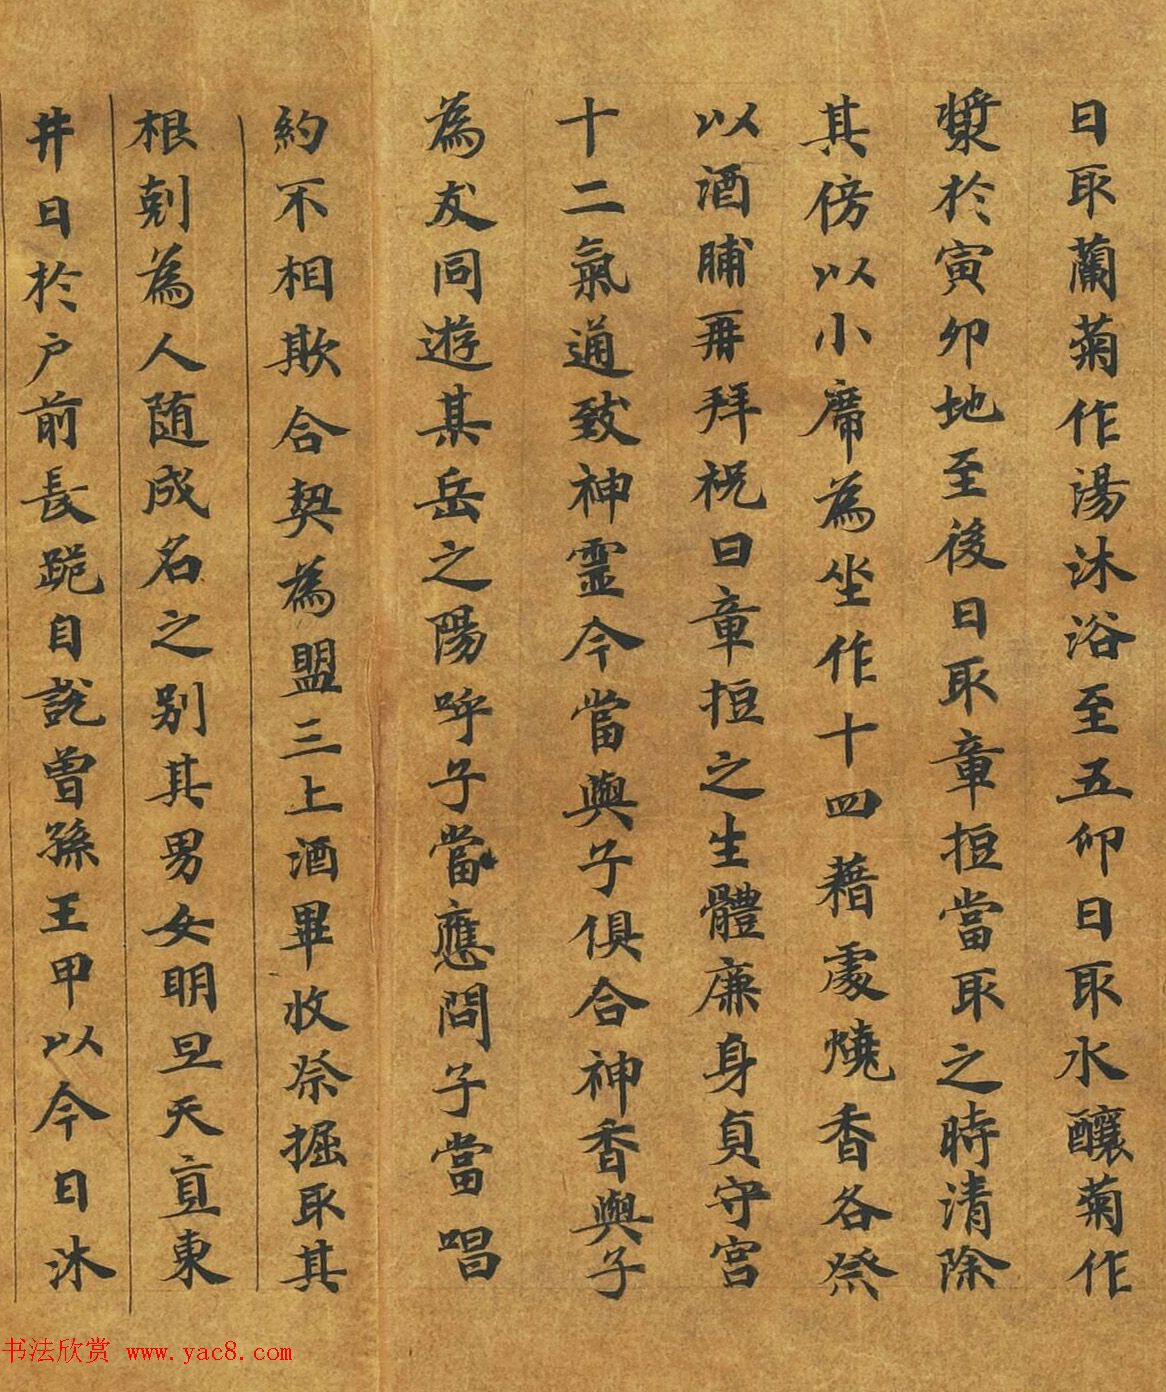 日取蘭菊作湯沐浴至五卯日取水釀菊作
漿於寅卯地至後日取章拒當取之時清除
其傍以小席為坐作十四藉處燒香各祭
以酒脯再拜祝曰章拒之生體廉身貞守宮
十二氣通致神靈今當與子俱合神香與子
為友同遊某岳之陽呼子當應問子當唱
約不相欺合契為盟三上酒畢收祭掘取其
根剋為人随成名之别其男女明旦天直東
井日於户前長跪自說曾孫王甲以今日沐
书法欣赏 www.yac8.com